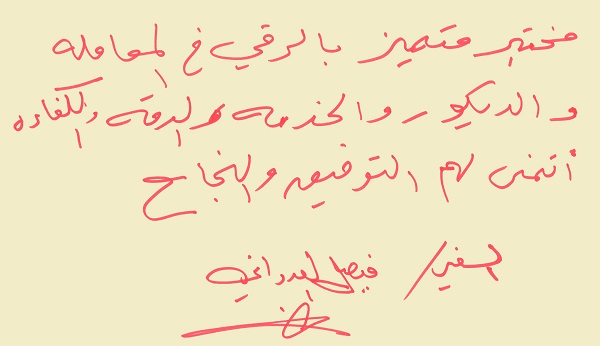 مختبر متميز بالرقي في المعامله
والديكور والخدمه والدقه والكفاءه
أتمنى لهم التوفيق والنجاح
السفير / فيصل